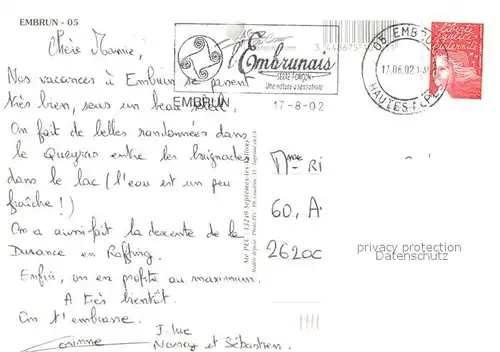 EMBRUN - 05
Chère Mamie,
Nos vacances à Embrun se passent
très bien, sous un beau soleil.
On fait de belles randonnées dans
le Queyras entre les baignades
dans le lac (l'eau est un peu
fraîche !)
On a aussi fait la descente de la
Durance en Rafting.
Enfin, on en profite au maximum.
A très bientôt.
On t'embrasse.
Corinne
J. Luc
Nancy et Sébastien.
l'Embrunais
SERRE-PONÇON
Une nature à sensations
EMBRUN
17-8-02
05 EMBRUN
17.08.02
HAUTES-ALPES
Liberté
Egalité
Fraternité
Mme RI
60, A
2620C
privacy protection
Datenschutz